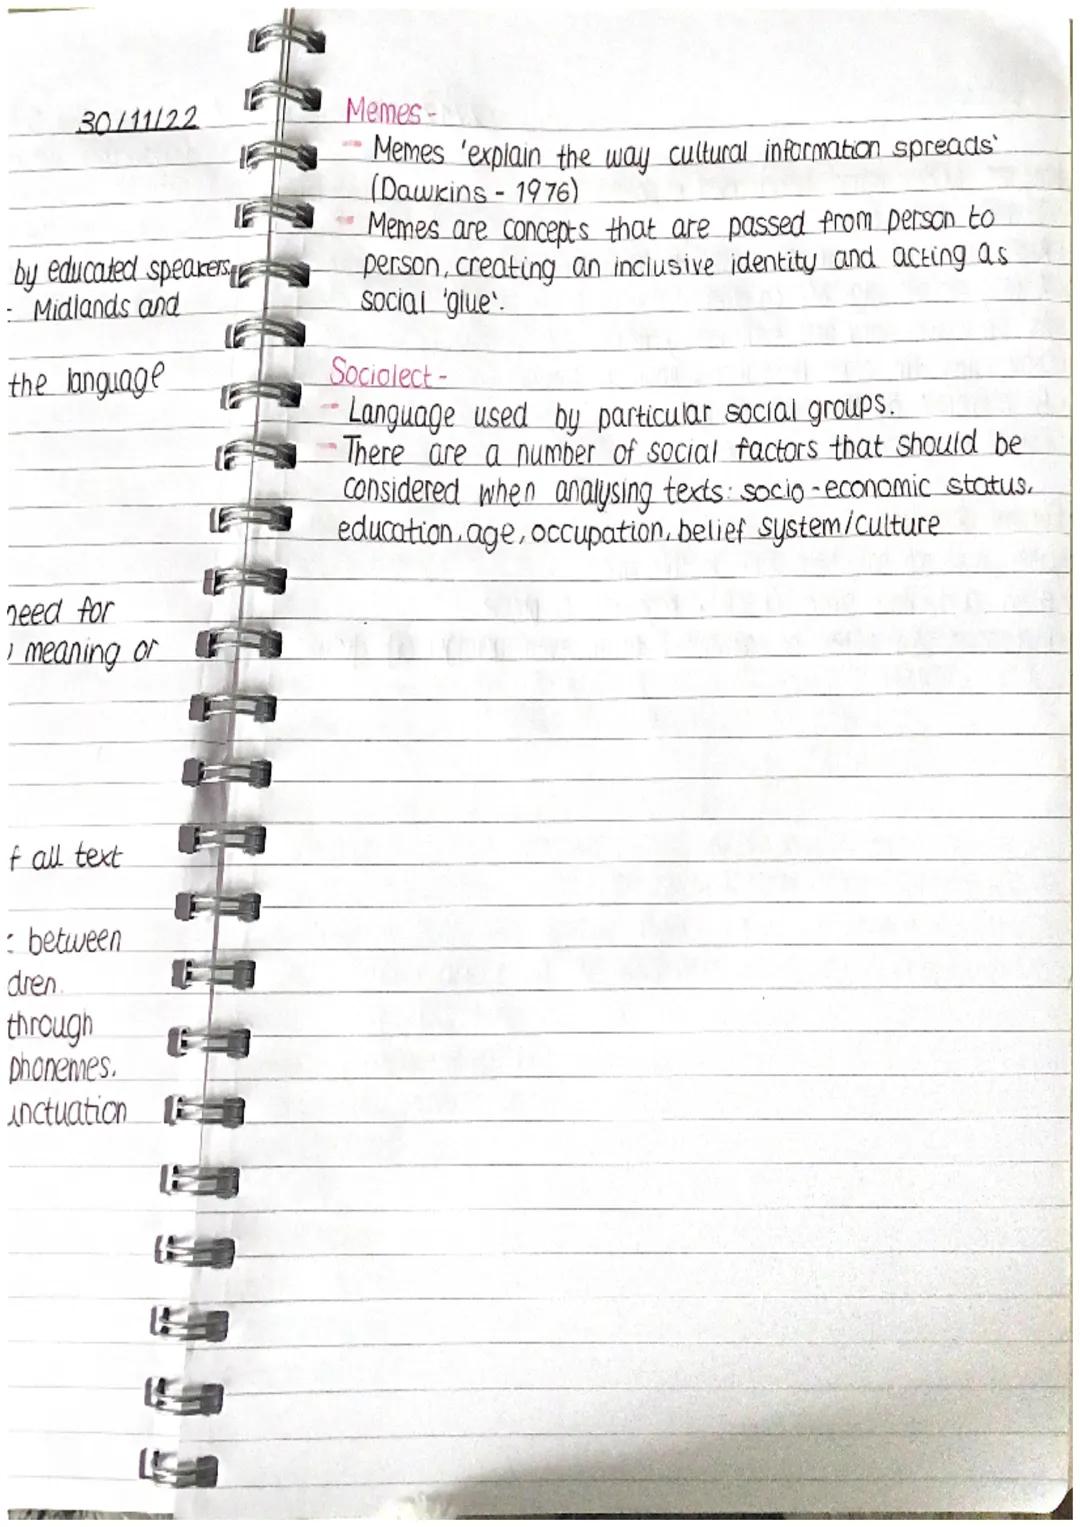 30/11/22
by educated speakers,
- Midlands and
the language
need for
meaning or
f all text
: between
dren.
through
phonemes.
unctuation
Memes -
- Memes 'explain the way cultural information spreads'
(Dawkins - 1976)
- Memes are concepts that are passed from person to
person, creating an inclusive identity and acting as
social 'glue'.
Sociolect -
- Language used by particular social groups.
- There are a number of social factors that should be
considered when analysing texts: socio-economic status,
education, age, occupation, belief system/culture